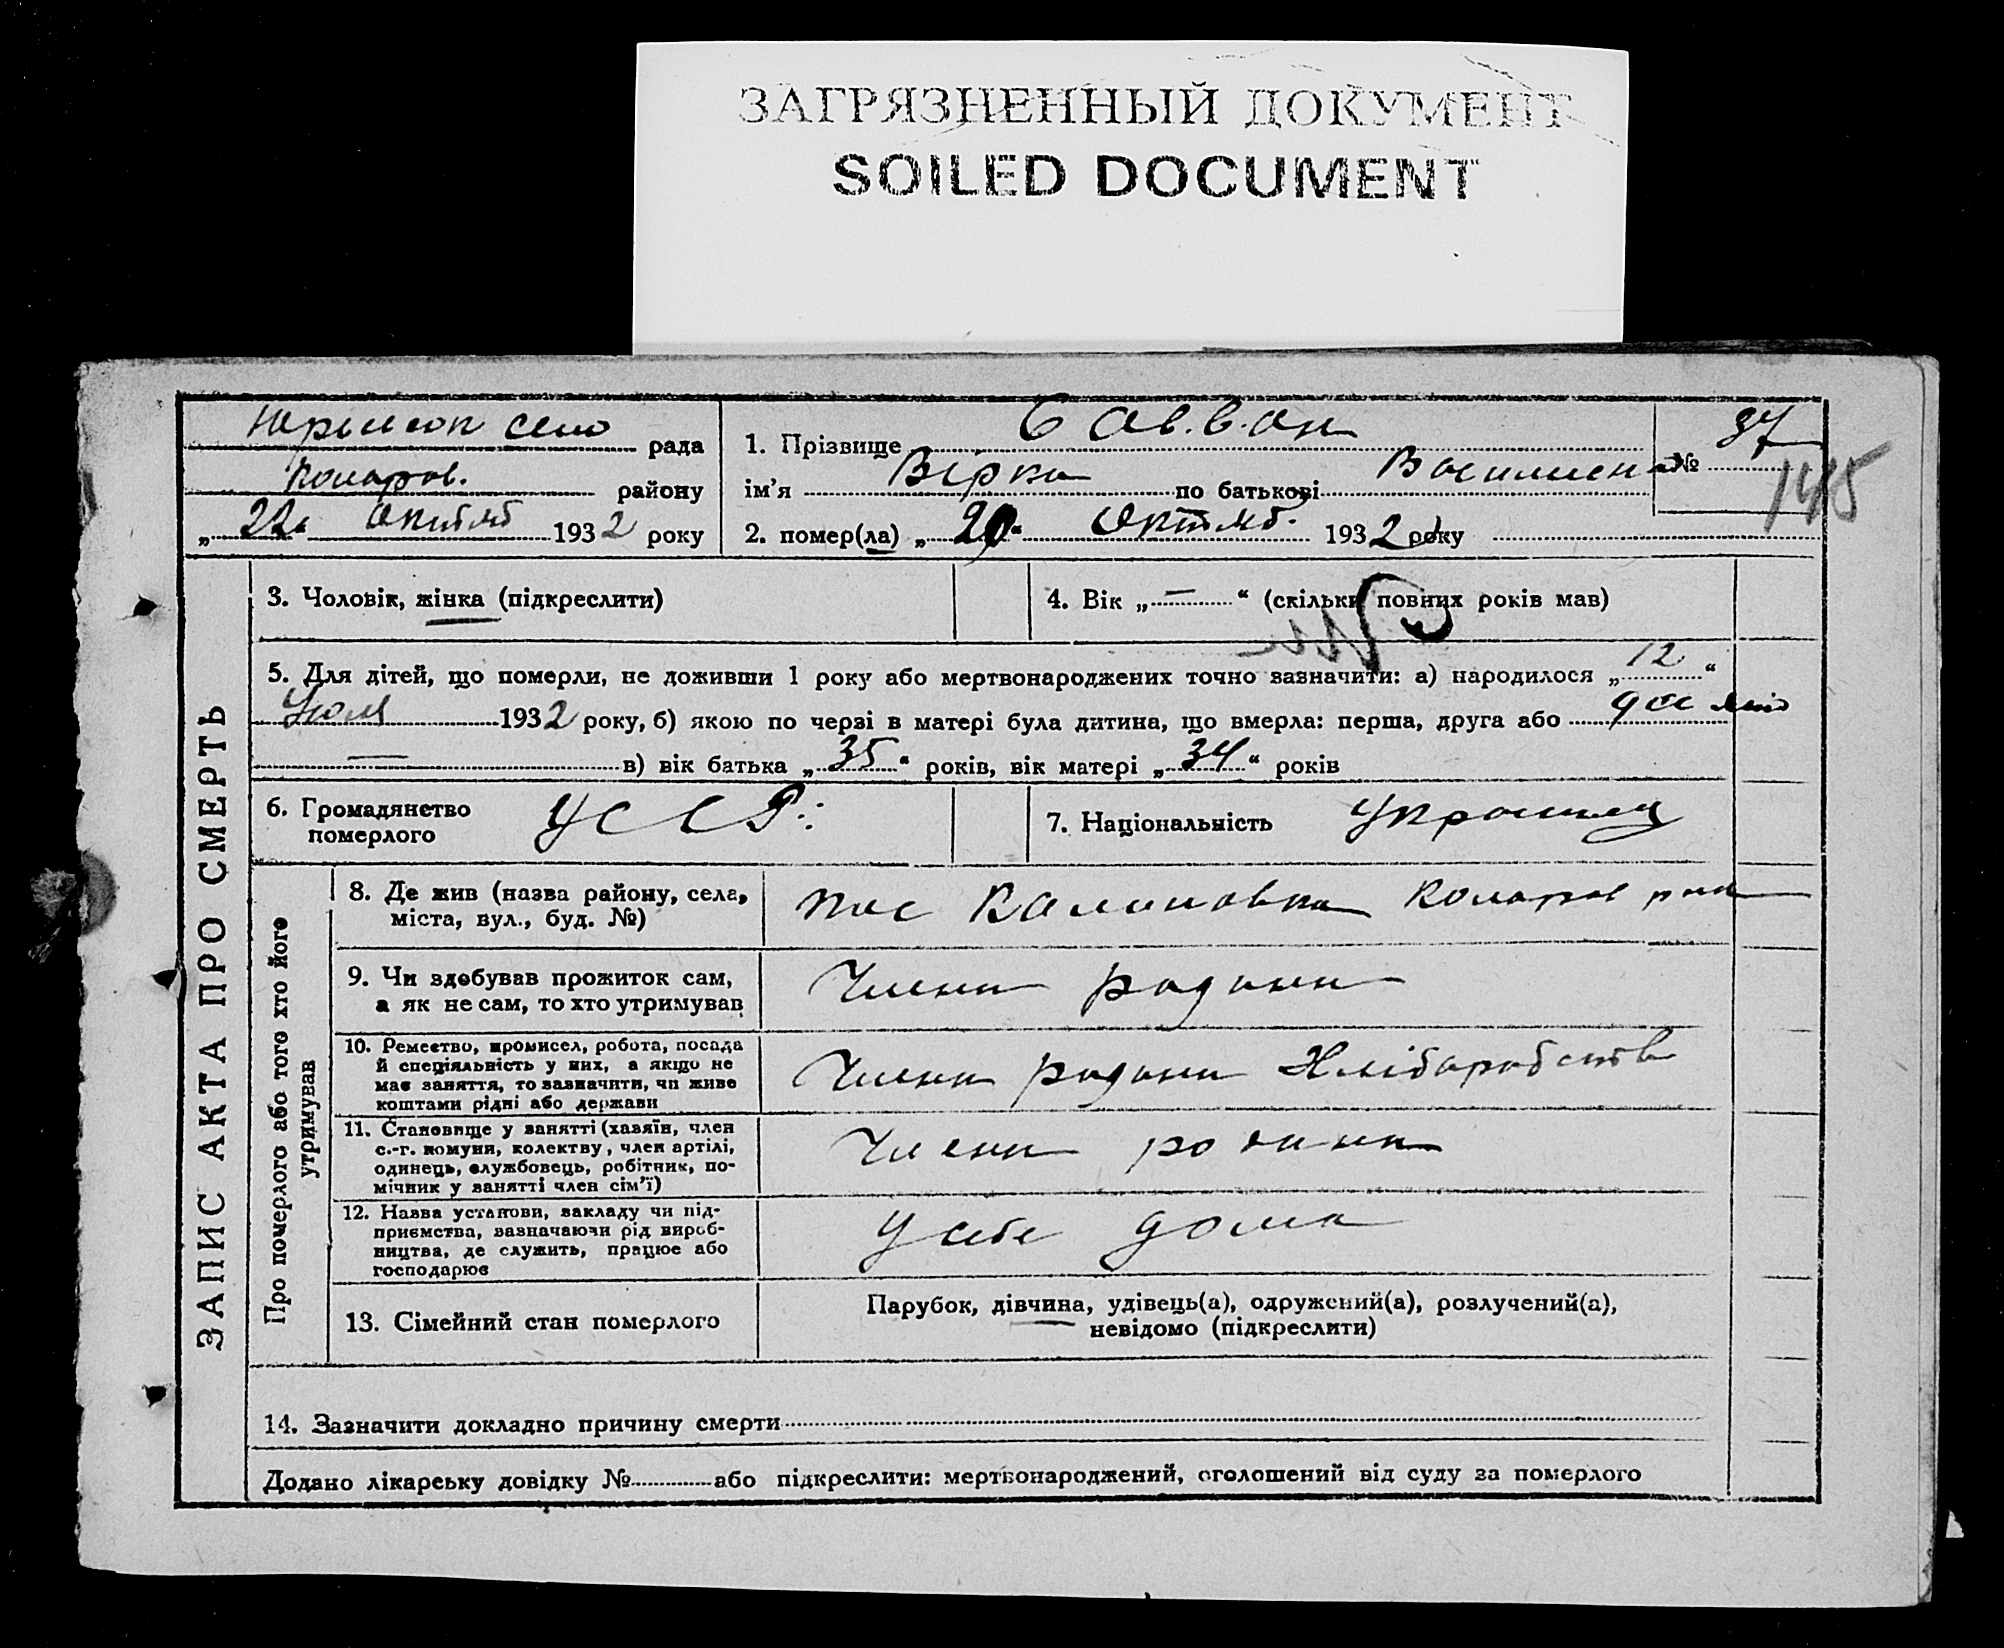 ЗАГРЯЗНЕННЫЙ ДОКУМЕНТ
SOILED DOCUMENT
село рада
Коларов. району
„ 22 Октяб 1932 року
1. Прізвище Савван
ім'я Вірка по батькові Василиена
№ 37
145
2. помер(ла) „ 20 “ Октяб. 1932 року
ЗАПИС АКТА ПРО СМЕРТЬ
3. Чоловік, жінка (підкреслити)
4. Вік „ — “ (скільки повних років мав)
5. Для дітей, що померли, не доживши 1 року або мертвонароджених точно зазначити: а) народилося „ 12 “
Июля 1932 року, б) якою по черзі в матері була дитина, що вмерла: перша, друга або
— в) вік батька „ 35 “ років, вік матері „ 34 “ років
6. Громадянство
померлого
УССР.
7. Національність
Про померлого або того хто його
утримував
8. Де жив (назва району, села,
міста, вул., буд. №)
пос Калиновка Коларов рай
9. Чи здобував прожиток сам,
а як не сам, то хто утримував
Члени родини
10. Ремество, промисел, робота, посада
й спеціяльність у них, а якщо не
має заняття, то зазначити, чи живе
коштами рідні або держави
Члени родини Хлібаробств
11. Становище у занятті (хазяїн, член
с.-г. комуни, колективу, член артілі,
одинець, службовець, робітник, по-
мічник у занятті член сім'ї)
Члени родини
12. Назва установи, закладу чи під-
приємства, зазначаючи рід вироб-
ництва, де служить, працює або
господарює
У себе дома
13. Сімейний стан померлого
Парубок, дівчина, удівець(а), одружений(а), розлучений(а),
невідомо (підкреслити)
14. Зазначити докладно причину смерти
Додано лікарську довідку № або підкреслити: мертвонароджений, оголошений від суду за померлого